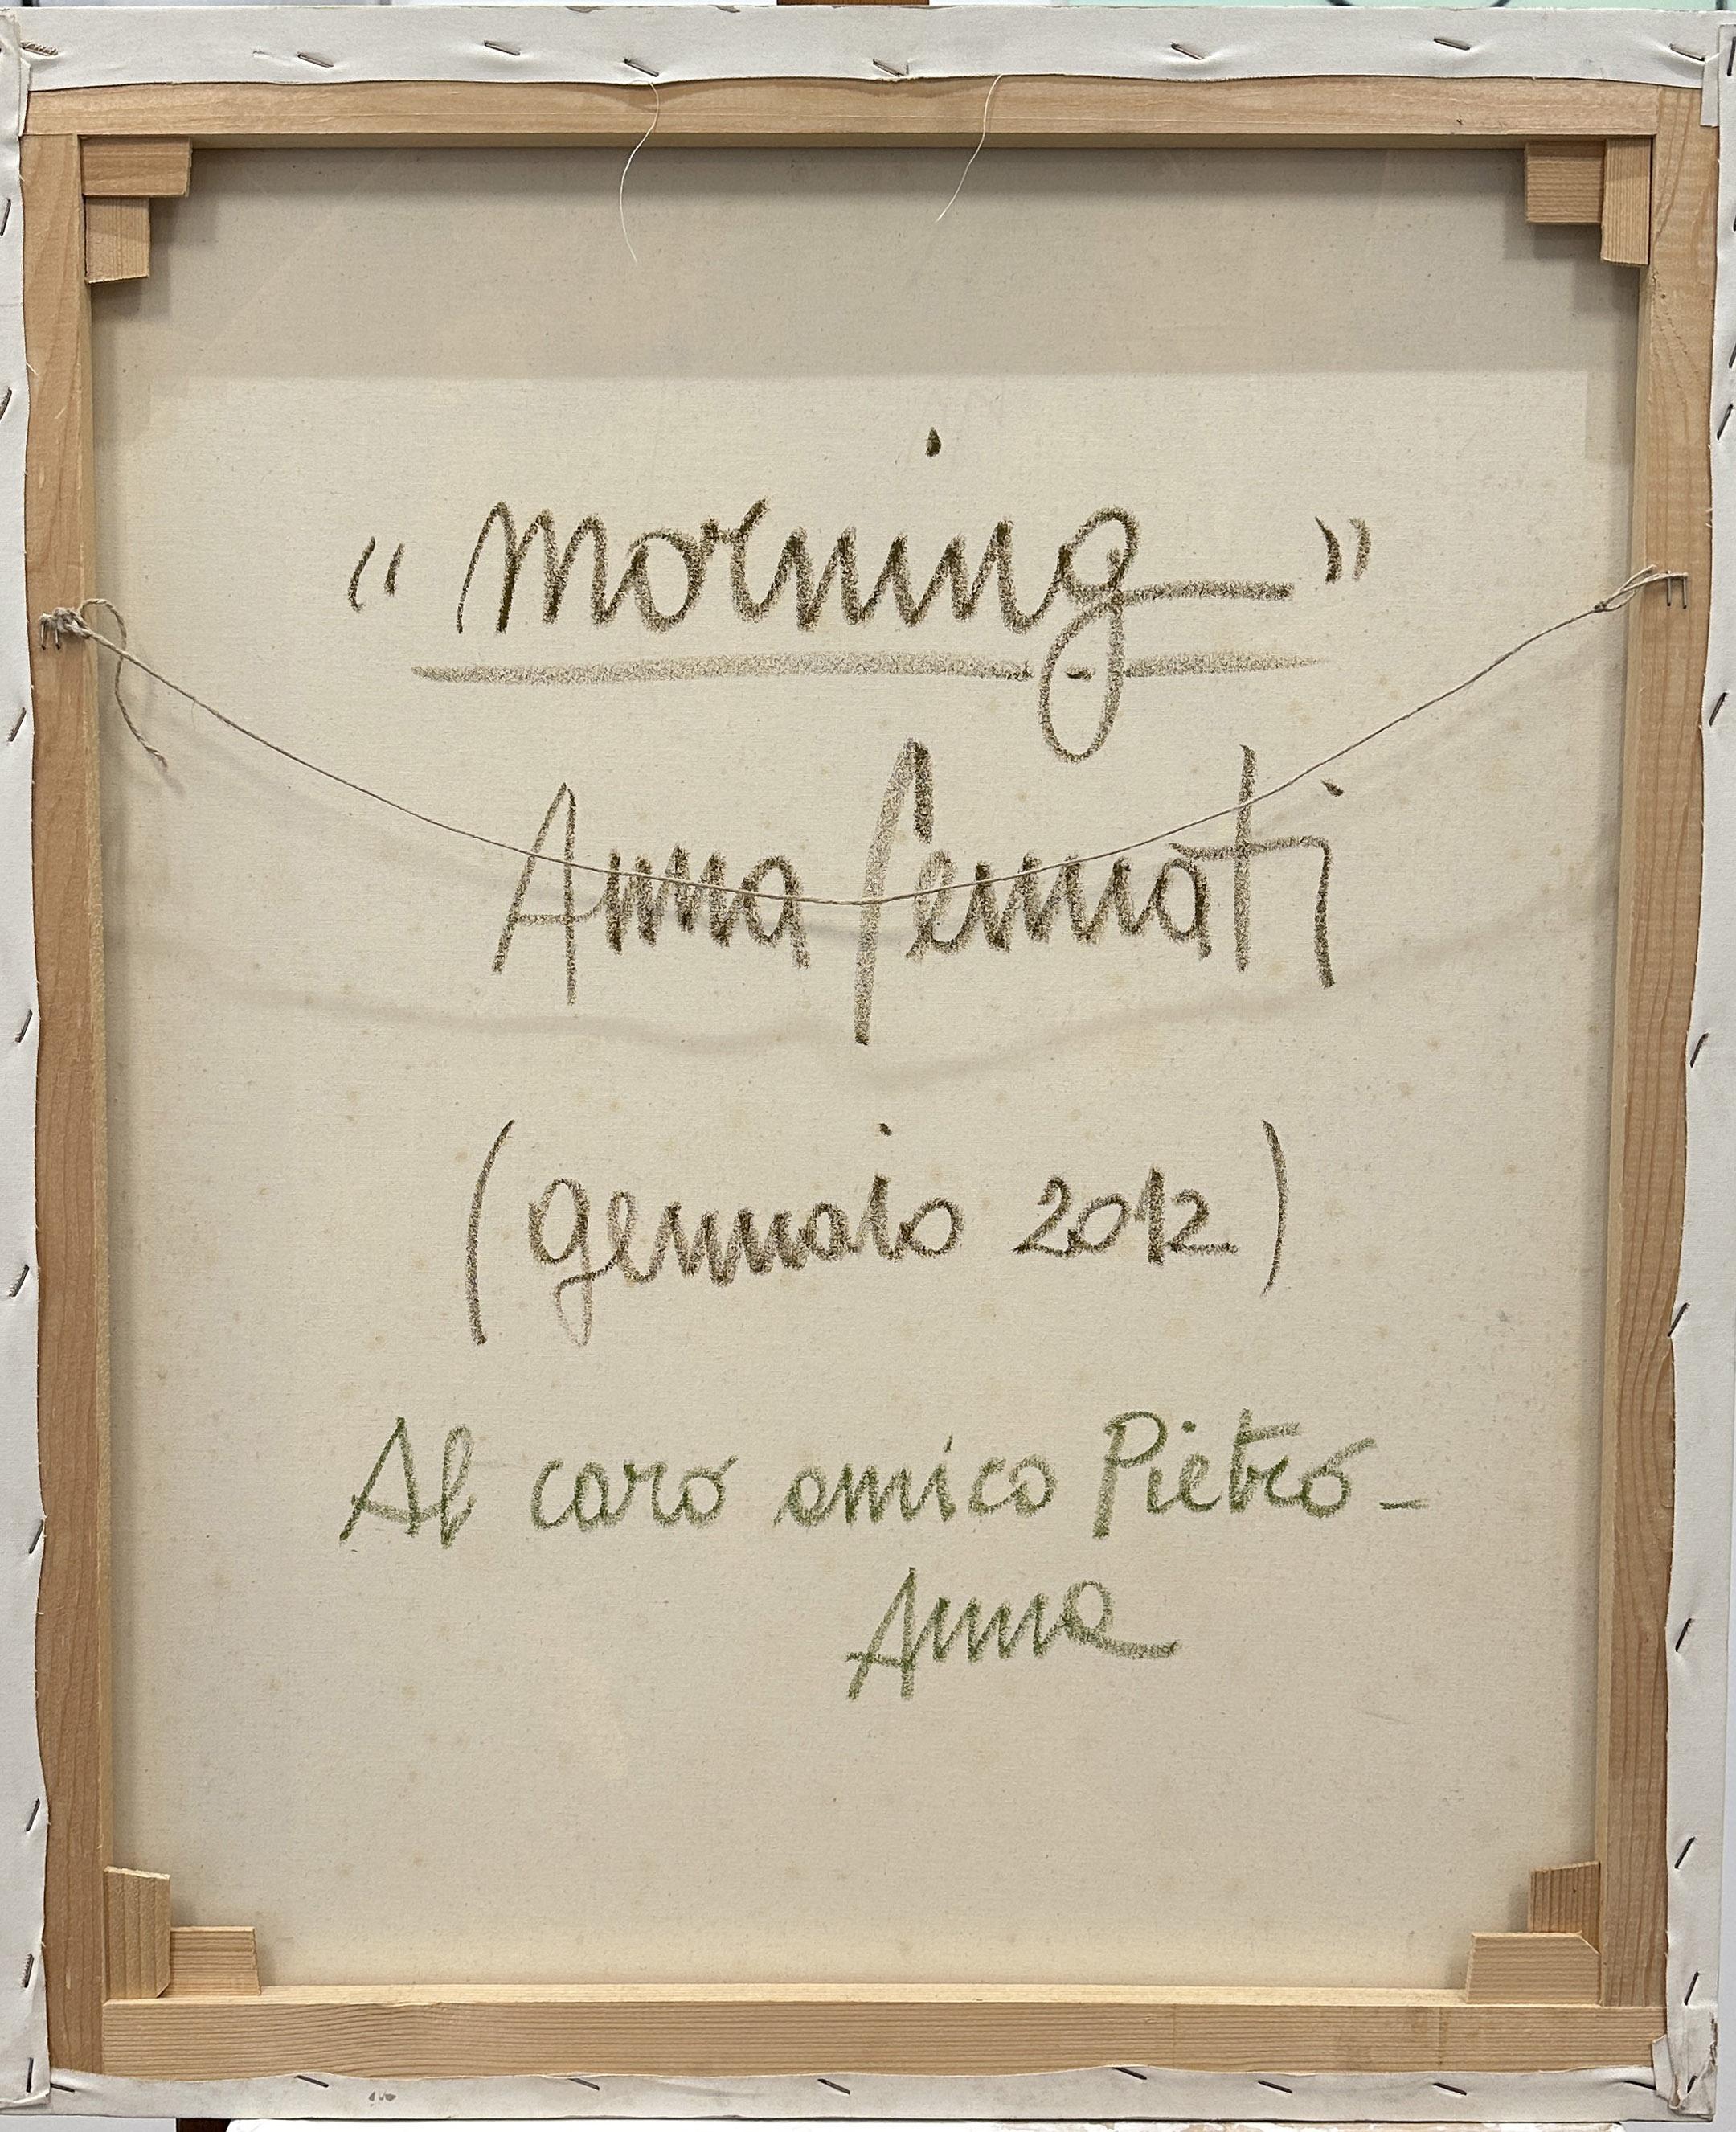 "morning"
Anna Pennati
(gennaio 2012)
Al caro amico Pietro -
Anna